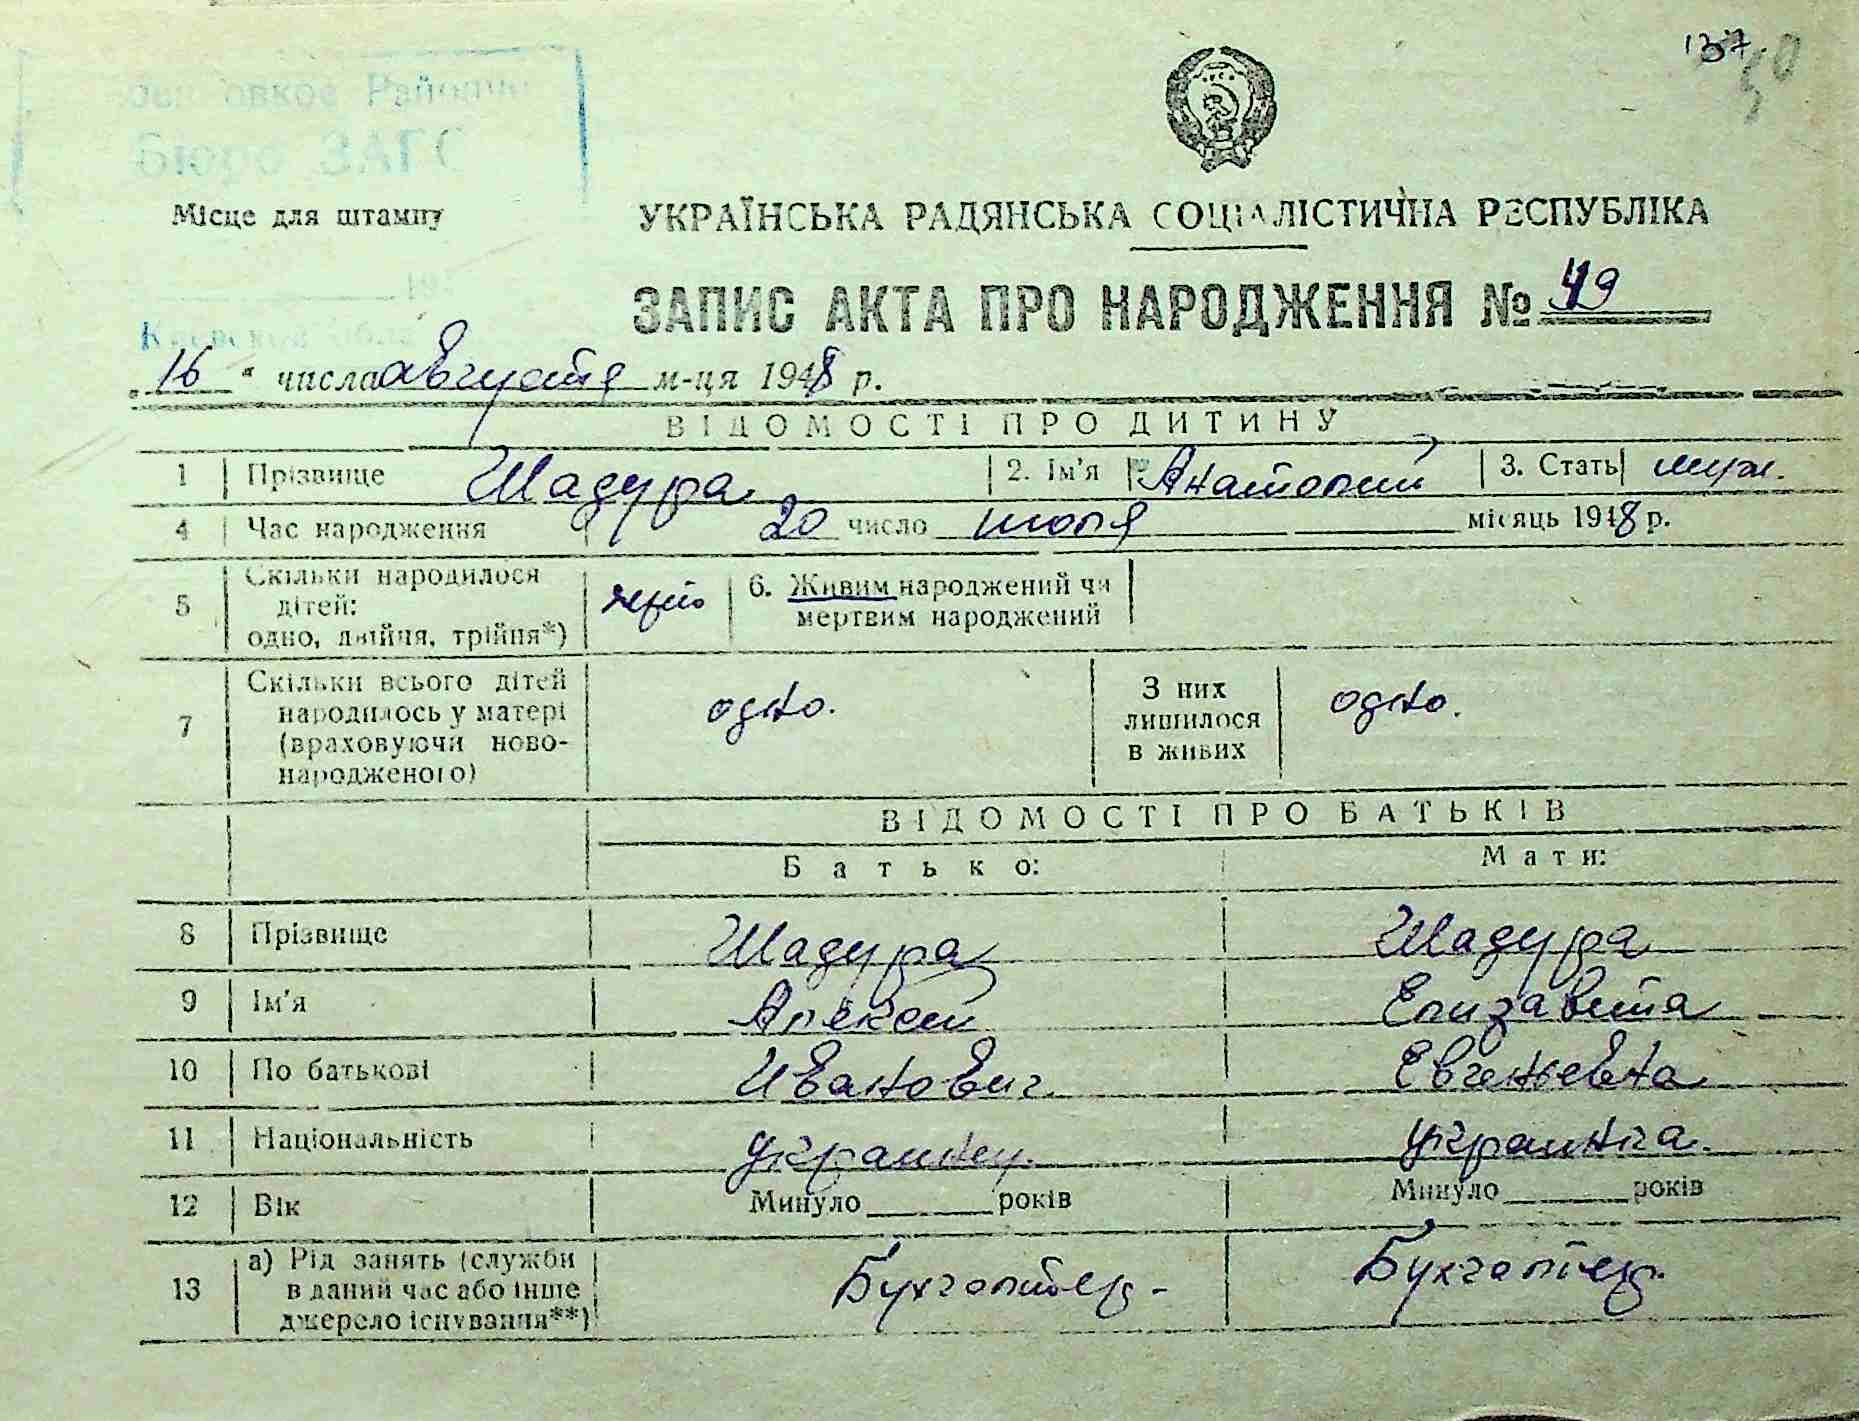 137.
50
Бюро ЗАГС
Місце для штампу
УКРАЇНСЬКА РАДЯНСЬКА СОЦІАЛІСТИЧНА РЕСПУБЛІКА
ЗАПИС АКТА ПРО НАРОДЖЕННЯ № 49
„16“ числа августа м-ця 1948 р.
ВІДОМОСТІ ПРО ДИТИНУ
1 Прізвище Шадура 2. Ім'я Анатолий 3. Стать муж.
4 Час народження 20 число июля місяць 1948 р.
5 Скільки народилося дітей: одно, двійня, трійня*) 6. Живим народжений чи мертвим народжений
7 Скільки всього дітей народилось у матері (враховуючи новонародженого) одно. З них лишилося в живих одно.
ВІДОМОСТІ ПРО БАТЬКІВ
Батько: Мати:
8 Прізвище Шадура Шадура
9 Ім'я Алексей Елизавета
10 По батькові Иванович Евгеньевна
11 Національність украинец. украинка.
12 Вік Минуло ____ років Минуло ____ років
13 а) Рід занять (служби в даний час або інше джерело існування**) Бухгалтер - Бухгалтер.